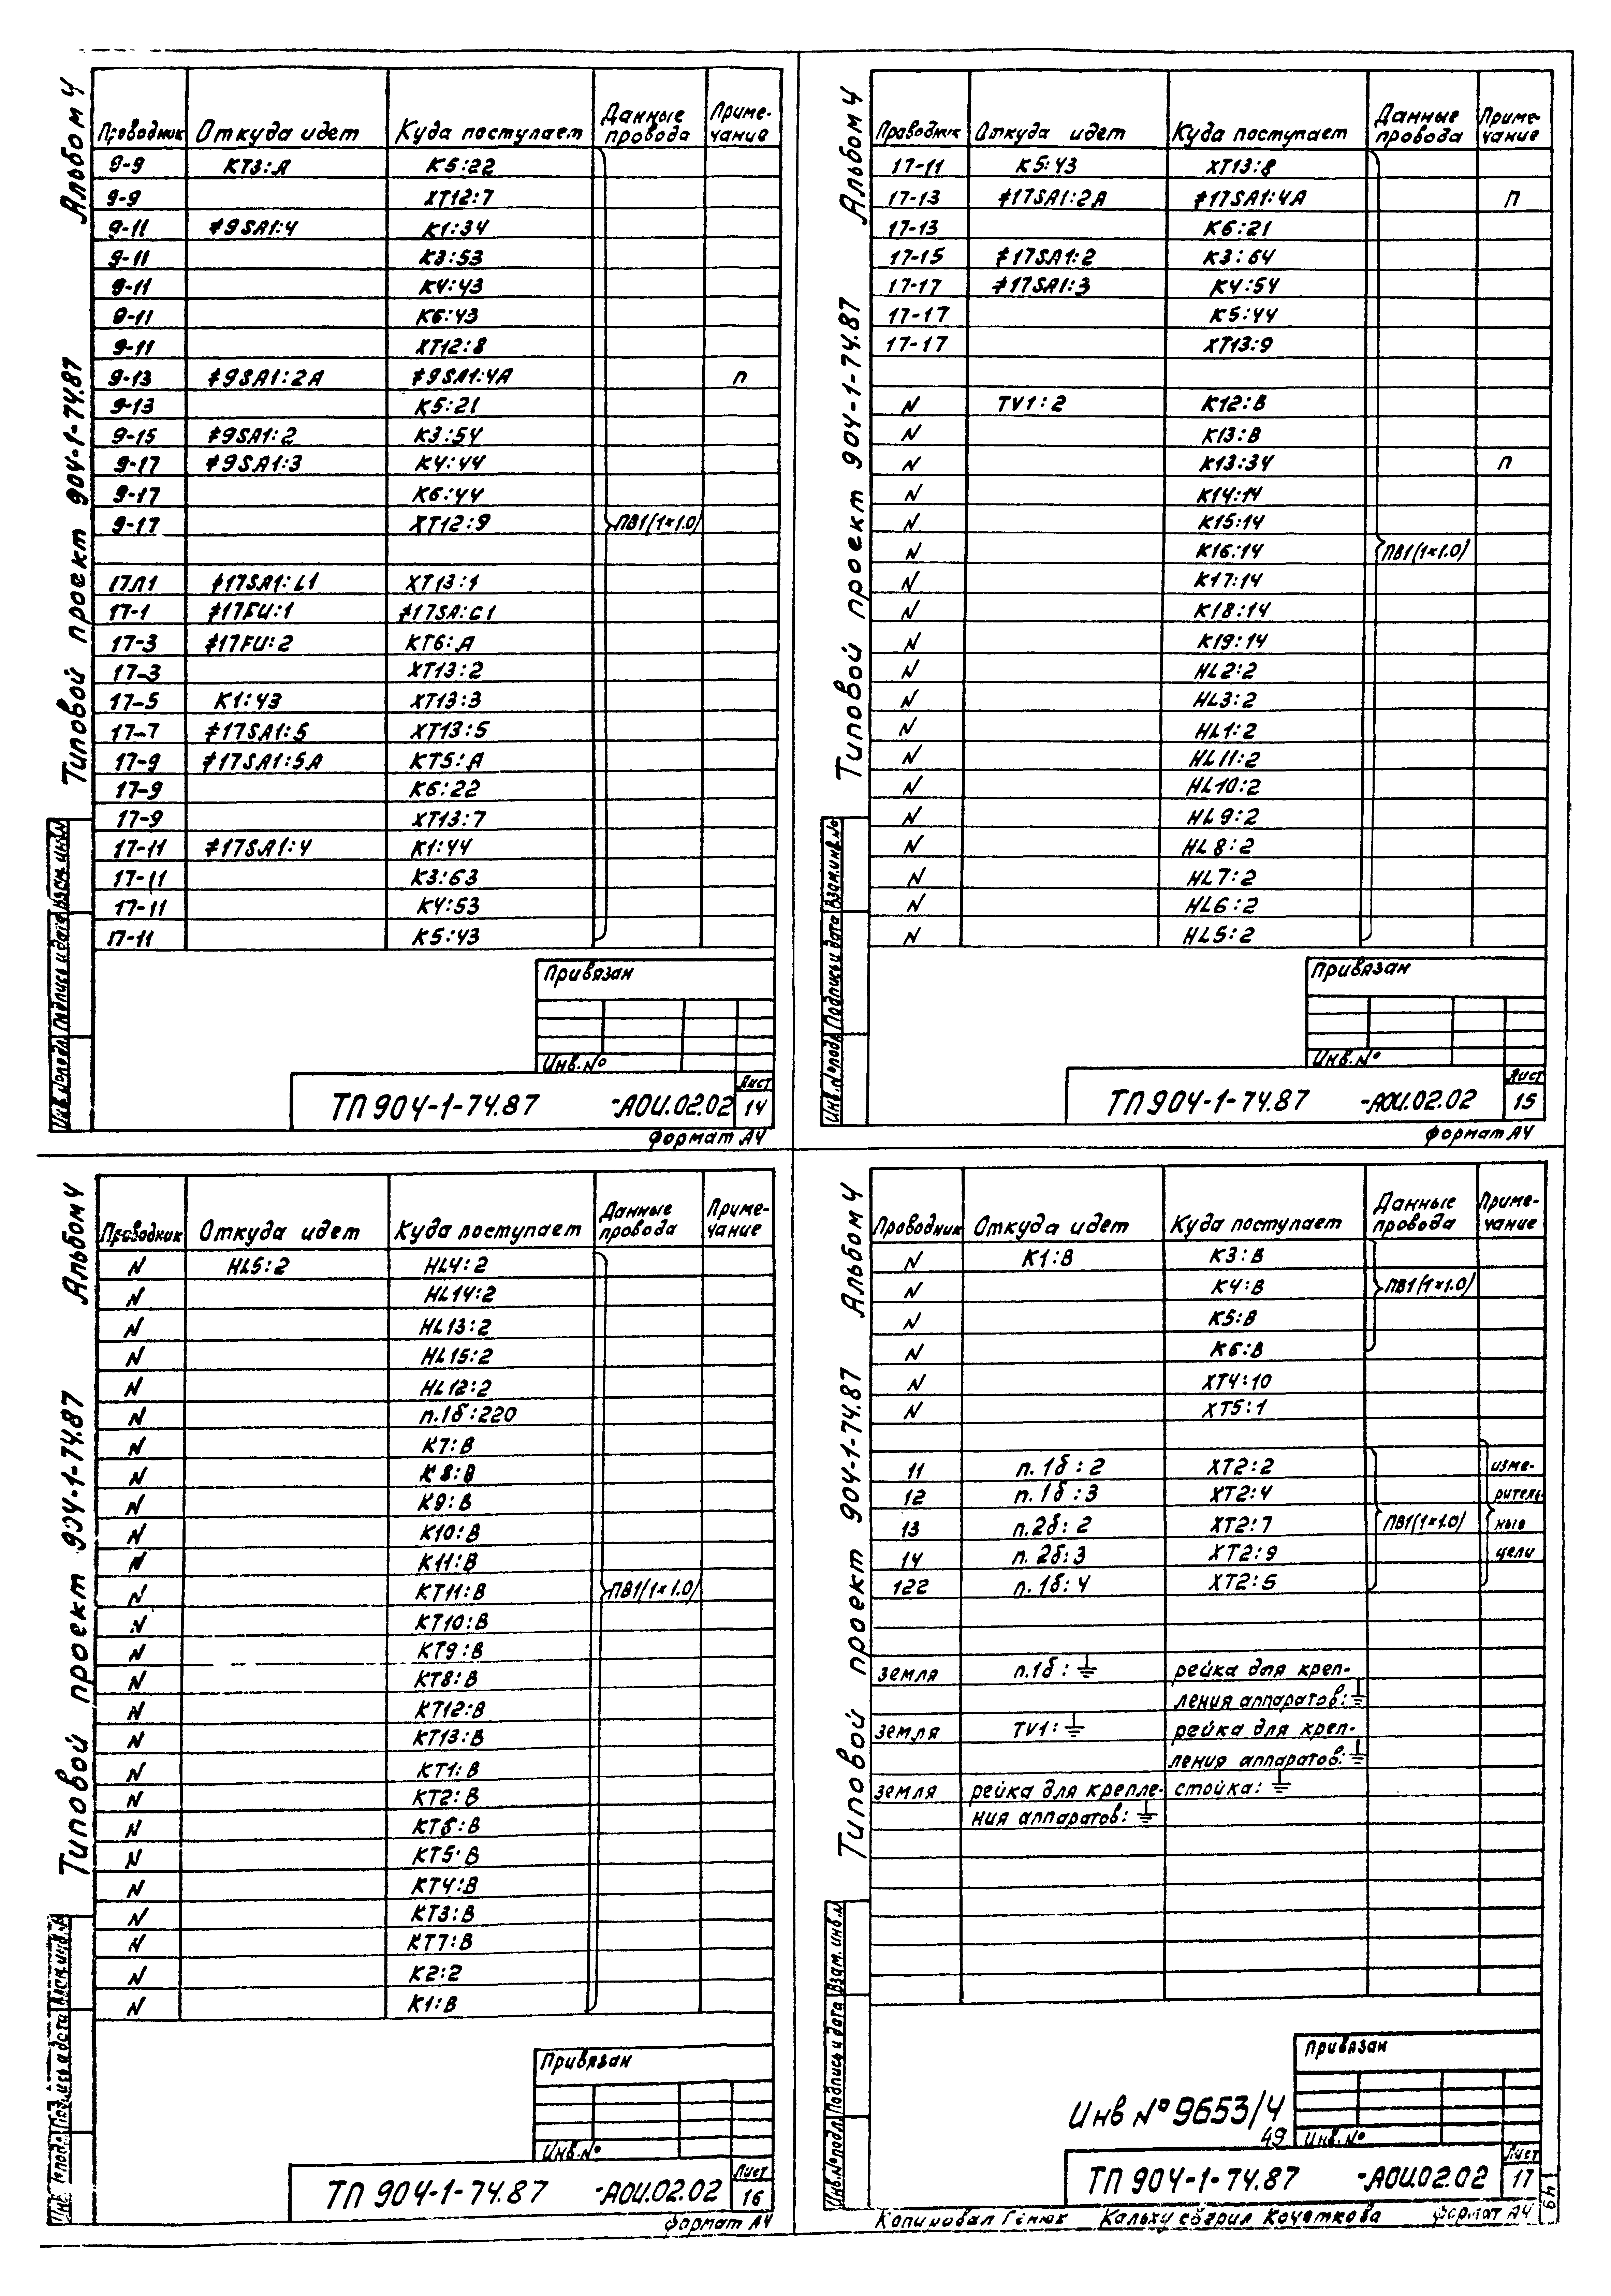 Альбом 4
Типовой проект 904-1-74.87
Проводник Откуда идет Куда поступает Данные провода Приме-чание
9-9 КТ3:А К5:22
9-9 ХТ12:7
9-11 ≠9SA1:4 К1:34
9-11 К3:53
9-11 К4:43
9-11 К6:43
9-11 ХТ12:8
9-13 ≠9SA1:2А ≠9SA1:4А п
9-13 К5:21
9-15 ≠9SA1:2 К3:54
9-17 ≠9SA1:3 К4:44
9-17 К6:44
9-17 ХТ12:9 ПВ1(1×1.0)
17Л1 ≠17SA1:L1 ХТ13:1
17-1 ≠17FU:1 ≠17SA:C1
17-3 ≠17FU:2 КТ6:А
17-3 ХТ13:2
17-5 К1:43 ХТ13:3
17-7 ≠17SA1:5 ХТ13:5
17-9 ≠17SA1:5А КТ5:А
17-9 К6:22
17-9 ХТ13:7
17-11 ≠17SA1:4 К1:44
17-11 К3:63
17-11 К4:53
17-11 К5:43
Привязан
Инв.№
ТП 904-1-74.87 -АОИ.02.02 Лист 14
Формат А4
Альбом 4
Типовой проект 904-1-74.87
Проводник Откуда идет Куда поступает Данные провода Приме-чание
17-11 К5:43 ХТ13:8
17-13 ≠17SA1:2А ≠17SA1:4А П
17-13 К6:21
17-15 ≠17SA1:2 К3:64
17-17 ≠17SA1:3 К4:54
17-17 К5:44
17-17 ХТ13:9
N TV1:2 К12:В
N К13:В
N К13:34 п
N К14:14
N К15:14
N К16:14 ПВ1(1×1.0)
N К17:14
N К18:14
N К19:14
N HL2:2
N HL3:2
N HL1:2
N HL11:2
N HL10:2
N HL9:2
N HL8:2
N HL7:2
N HL6:2
N HL5:2
Инв.№подл. Подпись и дата Взам.инв.№
Привязан
Инв.№
ТП 904-1-74.87 -АОИ.02.02 Лист 15
Формат А4
Альбом 4
Типовой проект 904-1-74.87
Проводник Откуда идет Куда поступает Данные провода Приме-чание
N HL5:2 HL4:2
N HL14:2
N HL13:2
N HL15:2
N HL12:2
N п.1б:220
N К7:В
N К8:В
N К9:В
N К10:В
N К11:В
N КТ11:В ПВ1(1×1.0)
N КТ10:В
N КТ9:В
N КТ8:В
N КТ12:В
N КТ13:В
N КТ1:В
N КТ2:В
N КТ6:В
N КТ5:В
N КТ4:В
N КТ3:В
N КТ7:В
N К2:2
N К1:В
Привязан
Инв.№
ТП 904-1-74.87 -АОИ.02.02 Лист 16
формат А4
Альбом 4
Типовой проект 904-1-74.87
Проводник Откуда идет Куда поступает Данные провода Приме-чание
N К1:В К3:В
N К4:В ПВ1(1×1.0)
N К5:В
N К6:В
N ХТ4:10
N ХТ5:1
11 п.1б:2 ХТ2:2 изме-
12 п.1б:3 ХТ2:4 ритель-
13 п.2б:2 ХТ2:7 ПВ1(1×1.0) ные
14 п.2б:3 ХТ2:9 цепи
122 п.1б:4 ХТ2:5
земля п.1б:⏚ рейка для креп-
ления аппаратов:⏚
земля TV1:⏚ рейка для креп-
ления аппаратов:⏚
земля рейка для крепле- стойка:⏚
ния аппаратов:⏚
Инв.№подл. Подпись и дата Взам.инв.№
Привязан
Инв №9653/4
49
Инв.№
ТП 904-1-74.87 -АОИ.02.02 Лист 17
49
Копировал Кальку сверил Кочеткова формат А4